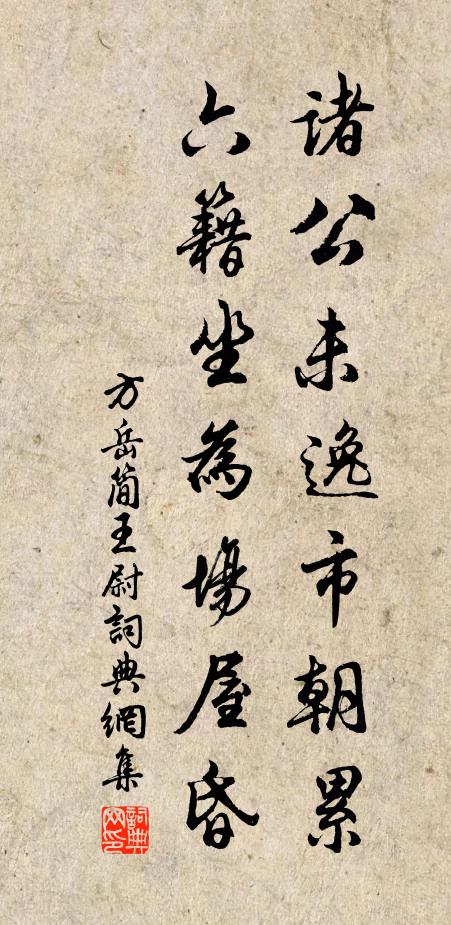 諸公未逸市朝累
六籍坐為場屋昏
方岳簡王尉詞典網集
詞典網印